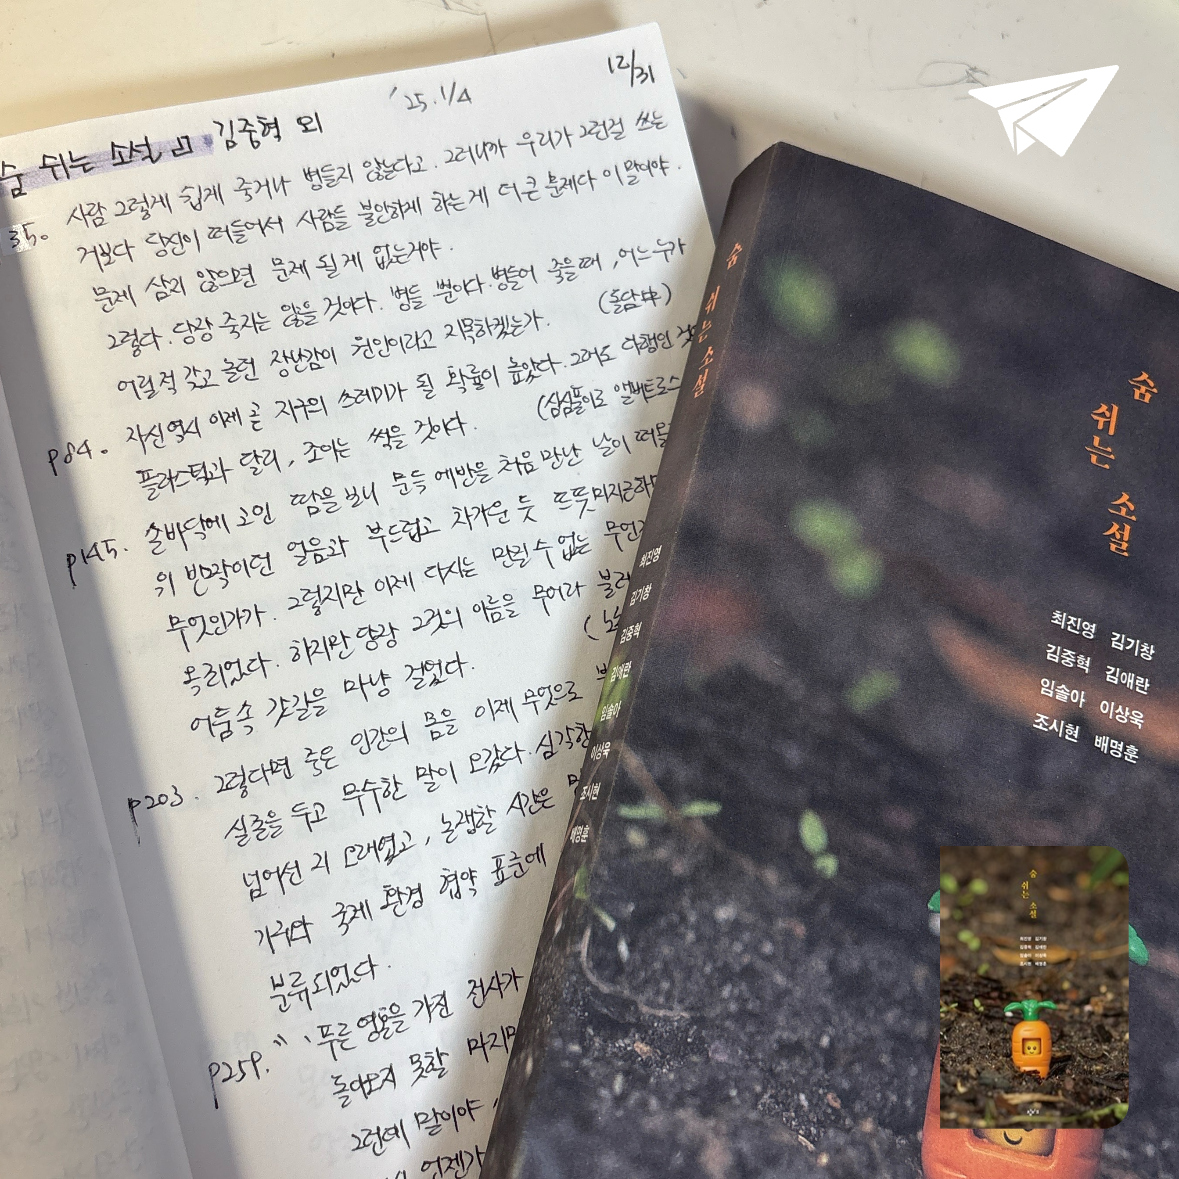 12/31
'25. 1/4
숨 쉬는 소설 김중혁 외
35. 사람 그렇게 쉽게 죽거나 병들지 않는다고. 그러니까 우리가 그런걸 쓰는
거보다 당신이 떠들어서 사람들 불안하게 하는게 더 큰 문제다 이 말이야.
문제 삼지 않으면 문제 될게 없는거야.
그렇다. 당장 죽지는 않을 것이다. 병들 뿐이다. 병들어 죽을때, 어느 누가
어릴적 갖고 놀던 장난감이 원인이라고 지목하겠는가. (돌담中)
p84. 자신 역시 이제 곧 지구의 쓰레기가 될 확률이 높았다. 그래도 다행인 것
플라스틱과 달리, 조이는 썩을 것이다. (심심풀이로 앨버트로스
p145. 손바닥에 고인 땀을 보니 문득 에반을 처음 만난 날이 떠올
위 반짝이던 얼음과 부드럽고 차가운 듯 뜨뜻미지근하
무엇인가가. 그렇지만 이제 다시는 만질 수 없는 무언가
목리었다. 하지만 당장 그것의 이름을 무어라 불러
어둠 속 갓길을 마냥 걸었다.
p203. 그렇다면 죽은 인간의 몸을 이제 무엇으로
실존을 두고 무수한 말이 오갔다. 심각한
넘어선 지 오래였고, 논쟁할 시간은
국제 환경 협약 표준에
분류되었다.
p259. "푸른 영혼을 가진 전사가
돌아오지 못할 마지막
그런데 말이야,
언젠가
숨 쉬는 소설
최진영
김기창
김중혁
김애란
임솔아
이상욱
조시현
배명훈
숨
쉬는
소설
최진영 김기창
김중혁 김애란
임솔아 이상욱
조시현 배명훈
숨
쉬는
소설
최진영 김기창
김중혁 김애란
임솔아 이상욱
조시현 배명훈